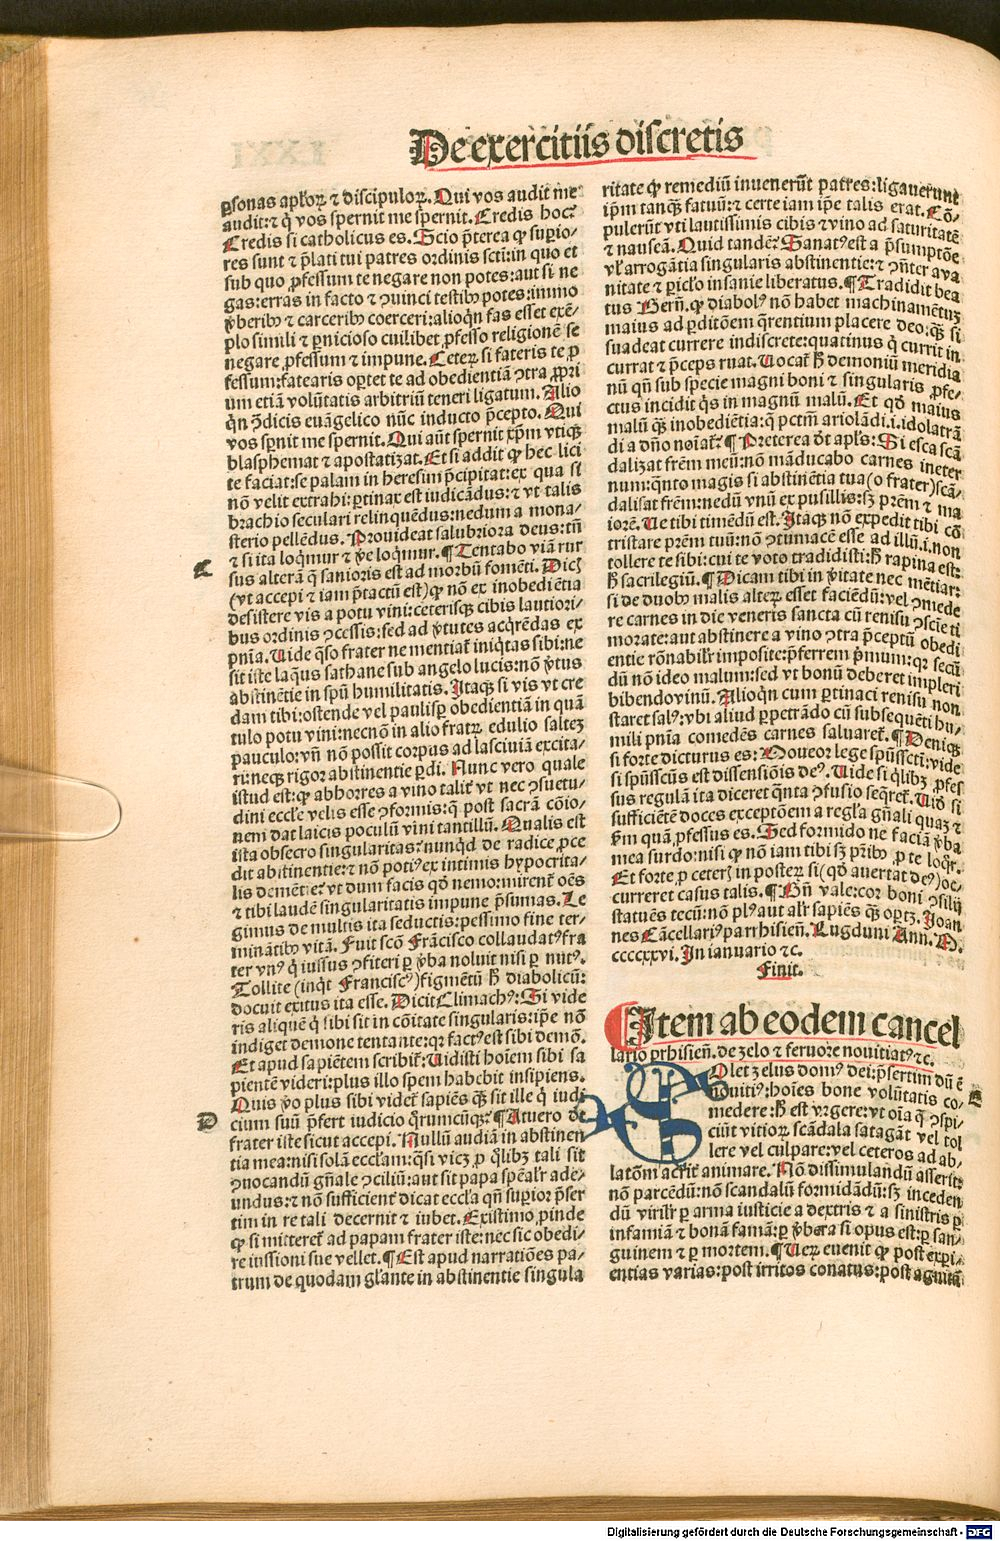 De exercitiis discretis
ꝑsonas apl'oꝝ ⁊ discipuloꝝ. Qui vos audit me
audit: ⁊ q̇ vos spernit me spernit. Credis hoc?
Credis si catholicus es. Scio p̄terea ꝙ suꝑio-
res sunt ⁊ p̄lati tui patres ordinis scti: in quo et
sub quo ꝓfessum te negare non potes: aut si ne
gas: erras in facto ⁊ ꝯuinci testibꝰ potes: immo
v̄beribꝰ ⁊ carceribꝰ coerceri: alioqn̄ fas esset exē-
plo simili ⁊ ꝑnicioso cuilibet ꝓfesso religionē se
negare ꝓfessum ⁊ impune. Ceteꝝ si fateris te ꝓ
fessum: fatearis oꝑtet te ad obedientiā ꝯtra ꝓpri
um etiā volūtatis arbitriū teneri ligatum. Alio
qn̄ ꝯ̄dicis euāgelico nūc inducto p̄cepto. Qui
vos sꝑnit me spernit. Qui aūt spernit xp̄m vtiqꝫ
blasphemat ⁊ apostatizat. Et si addit ꝙ hec lici
te faciat: se palam in heresim p̄cipitat: ex qua si
nō velit extrahi: ꝑtinax est iudicādus: ⁊ vt talis
brachio seculari relinquēdus: nedum a mona-
sterio pellēdus. Prouideat salubriora deus: tn̄
⁊ si ita loqmur ⁊ v̄e loqmur. ¶ Tentabo viā rur
C
sus alterā q̄ sanioris est ad morbū fomēti. Dicꝫ
(vt accepi ⁊ iam p̄tactū est) ꝙ nō ex inobediētia
desistere vis a potu vini: ceterisqꝫ cibis lautiori-
bus ordinis ꝯcessis: sed ad v̄tutes acq̄rēdas ex
pn̄ia. Uide q̄so frater ne mentiat̄ iniq̇tas sibi: ne
sit iste laq̄us sathane sub angelo lucis: nō v̄tus
abstinētie in spū humilitatis. Itaqꝫ si vis vt cre
dam tibi: ostende vel paulisꝑ obedientiā in quā
tulo potu vini: necnō in alio fratꝝ edulio saltez
pauculo: vn̄ non possit corpus ad lasciuiā excita-
ri: neqꝫ rigor abstinentie ꝑdi. Nunc vero quale
istud est: ꝙ abhorres a vino talit̄ vt nec ꝯsuetu-
dini eccl'ie velis esse ꝯformis: q̄ post sacrā cōio-
nem dat laicis poculū vini tantillū. Qualis est
ista obsecro singularitas? nunq̇d de radice ꝓce
dit abstinentie: ⁊ nō potiꝰ ex intimis hypocrita-
lis demētie? vt dum facis qđ nemo: mirent̄ oēs
⁊ tibi laudē singularitatis impune p̄sumas. Le
gimus de multis ita seductis: pessimo fine ter-
minātibꝰ vitā. Fuit scō Frācisco collaudatꝰ fra
ter vnꝰ q̇ iussus ꝯfiteri ꝑ v̄ba noluit nisi ꝑ nutꝰ.
Tollite (inq̇t Franciscꝰ) figmētū h̄ diabolicū:
docuit exitus ita esse. Dicit Climachꝰ: Si vide
ris aliquē q̇ sibi sit in cōitate singularis: ip̄e nō
indiget demone tentante: qꝛ factꝰ est sibi demō.
Et apud sapiētem scribit̄: Uidisti hoiem sibi sa
pientē videri: plus illo spem habebit insipiens.
Quis v̄o plus sibi videt̄ sapiēs qꝫ sit ille q̇ iudi
D
cium suū p̄fert iudicio q̄rumcūqꝫ? ¶ At uero de
frater iste sicut accepi. Nullū audiā in abstinen
tia mea: nisi solā eccl'iam: q̄si vicꝫ ꝓ q̄libꝫ tali sit
ꝯuocandū gn̄ale ꝯciliū: aut sit papa spēalr̄ ade-
undus: ⁊ nō sufficient̄ dicat eccl'ia qn̄ suꝑior p̄ser
tim in re tali decernit ⁊ iubet. Existimo ꝓinde
ꝙ si mitteret̄ ad papam frater iste: nec sic obedi-
re iussioni sue vellet. ¶ Est apud narratiōes pa-
trum de quodam gl'iante in abstinentie singula
ritate ꝙ remediū inuenerūt patres: ligauerunt
ip̄m tanqꝫ fatuū: ⁊ certe iam ip̄e talis erat. Cō-
pulerūt vti lautissimis cibis ⁊ vino ad saturitatē
⁊ nauseā. Quid tandē? Sanatꝰ est a p̄sumptōe
vl' arrogātia singularis abstinentie: ⁊ ꝯn̄ter a va
nitate ⁊ ꝑicl'o insanie liberatus. ¶ Tradidit bea
tus Bern̄. ꝙ diabolꝰ nō habet machinamētuꝫ
maius ad ꝑditōem q̄rentium placere deo: qꝫ si
suadeat currere indiscrete: quatinus q̇ currit in
currat ⁊ p̄ceps ruat. Uocat̄ h̄ demoniū meridia
nū qn̄ sub specie magni boni ⁊ singularis ꝓfe-
ctus incidit q̇s in magnū malū. Et qđ maius
malū qꝫ inobediētia: q̄ pctm̄ ariolādi .i. idolatrā
di a dn̄o noīat̄? ¶ Preterea dt̄ apl's: Si esca scā
dalizat frēm meū: nō māducabo carnes in eter
num: q̄nto magis si abstinētia tua (o frater) scā-
dalisat frēm: nedū vnū ex pusillis: sꝫ p̄rem ⁊ ma
iorē. Ue tibi timēdū est. Itaqꝫ nō expedit tibi cō
tristare prēm tuū: nō ꝯtumacē esse ad illū .i. non
tollere te sibi: cui te voto tradidisti: h̄ rapina est:
h̄ sacrilegiū. ¶ Dicam tibi in v̄itate nec mētiar:
si de duobꝰ malis alteꝝ esset faciēdū: vel ꝯmede
re carnes in die veneris sancta cū renisu ꝯsciētie ti
morate: aut abstinere a vino ꝯtra p̄ceptū obedi
entie rōnabilr̄ imposite: p̄ferrem p̄mum: qꝛ secū
dū nō ideo malum: sed vt bonū deberet impleri
bibendo vinū. Alioqn̄ cum ꝑtinaci renisu non
staret salꝰ: vbi aliud ꝑpetrādo cū subsequēti hu-
mili pn̄ia comedēs carnes saluaret̄. ¶ Deniqꝫ
si forte dicturus es: Moueor lege spūsscti: vide
si spūsscūs est dissensiōis deꝰ. Uide si q̄libꝫ ꝓfes
sus regulā ita diceret q̄nta ꝯfusio seq̄ret̄. Uiđ si
sufficiētē doces exceptōem a regl'a gn̄ali quaꝫ ⁊
p̄m quā ꝓfessus es. Sed formido ne faciā v̄ba
mea surdo: nisi ꝙ nō iam tibi sꝫ pr̄ibꝰ ꝓ te loq̄r.
Et forte ꝓ ceterꝫ in posteꝝ si (qđ auertat deꝰ) oc-
curreret casus talis. ¶ Bn̄ vale: cor boni ꝯsilij
statuēs tecū: nō plꝰ aut alr̄ sapiēs qꝫ oꝑtꝫ. Joan
nes Cācellariꝰ parrhisien̄. Lugduni Ann. M.
ccccxxvi. In ianuario ⁊c.
Finit.
¶ Item ab eodem cancel
lario prhisien̄. de zelo ⁊ feruore nouitiatꝰ ⁊c.
SOlet zelus domꝰ dei: p̄sertim dū ē
nouitiꝰ: hoīes bone volūtatis co-
E
medere: h̄ est vrgere: vt oīa q̄ ꝯspi-
ciūt vitioꝝ scādala satagāt vel tol
lere vel culpare: vel ceteros ad ab-
latōm acrit̄ animare. Nō dissimulandū asserit:
nō parcēdū: nō scandalū formidādū: sꝫ inceden
dū virilr̄ ꝑ arma iusticie a dextris ⁊ a sinistris ꝑ
infamiā ⁊ bonā famā: ꝑ v̄bera si opus est: ꝑ san-
guinem ⁊ ꝑ mortem. ¶ Ueꝝ euenit ꝙ post exꝑi-
entias varias: post irritos conatus: post agnitā
Digitalisierung gefördert durch die Deutsche Forschungsgemeinschaft - DFG